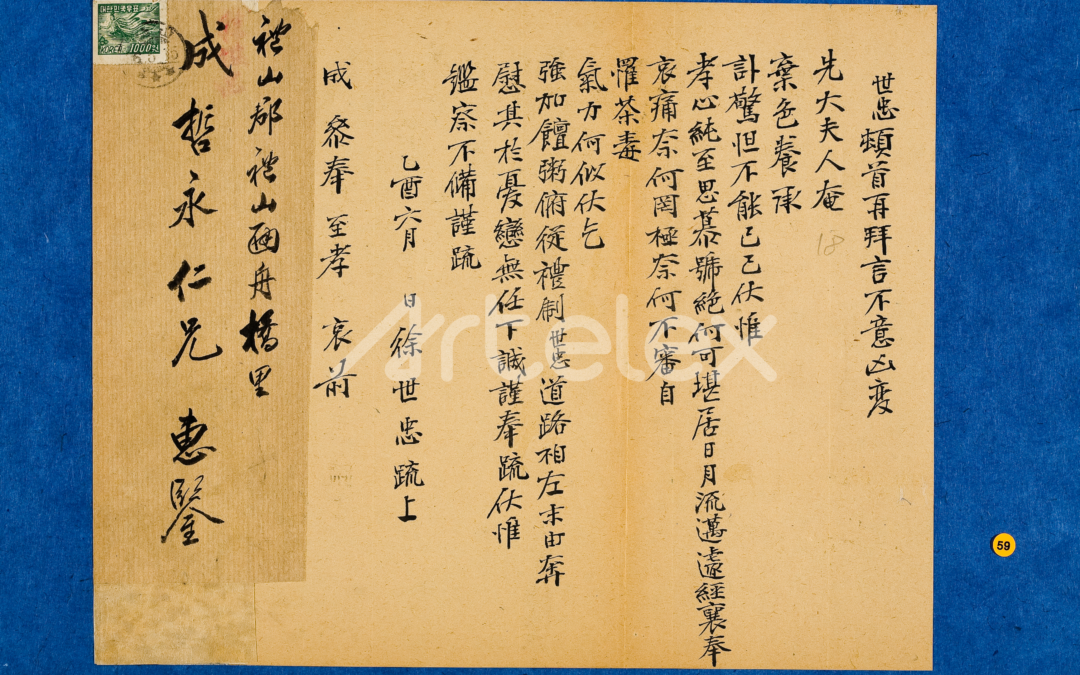 世忠頓首再拜言不意凶变
先大夫人奄
棄色養承
訃驚怛不能已已伏惟
孝心純至思慕號絶何可堪居日月流邁遽經襄奉
哀痛奈何罔極奈何不審自
罹荼毒
氣力何似伏乞
強加饘粥俯從禮制世忠道路相左未由奔
慰其於憂戀無任下誠謹奉疏伏惟
鑑察不備謹疏
乙酉六月 日徐世忠疏上
成參奉 至孝 哀前
禮山郡禮山面舟橋里
成哲永仁兄 惠鑒
대한민국우표
KOREA 1000원
18
Artelex
59